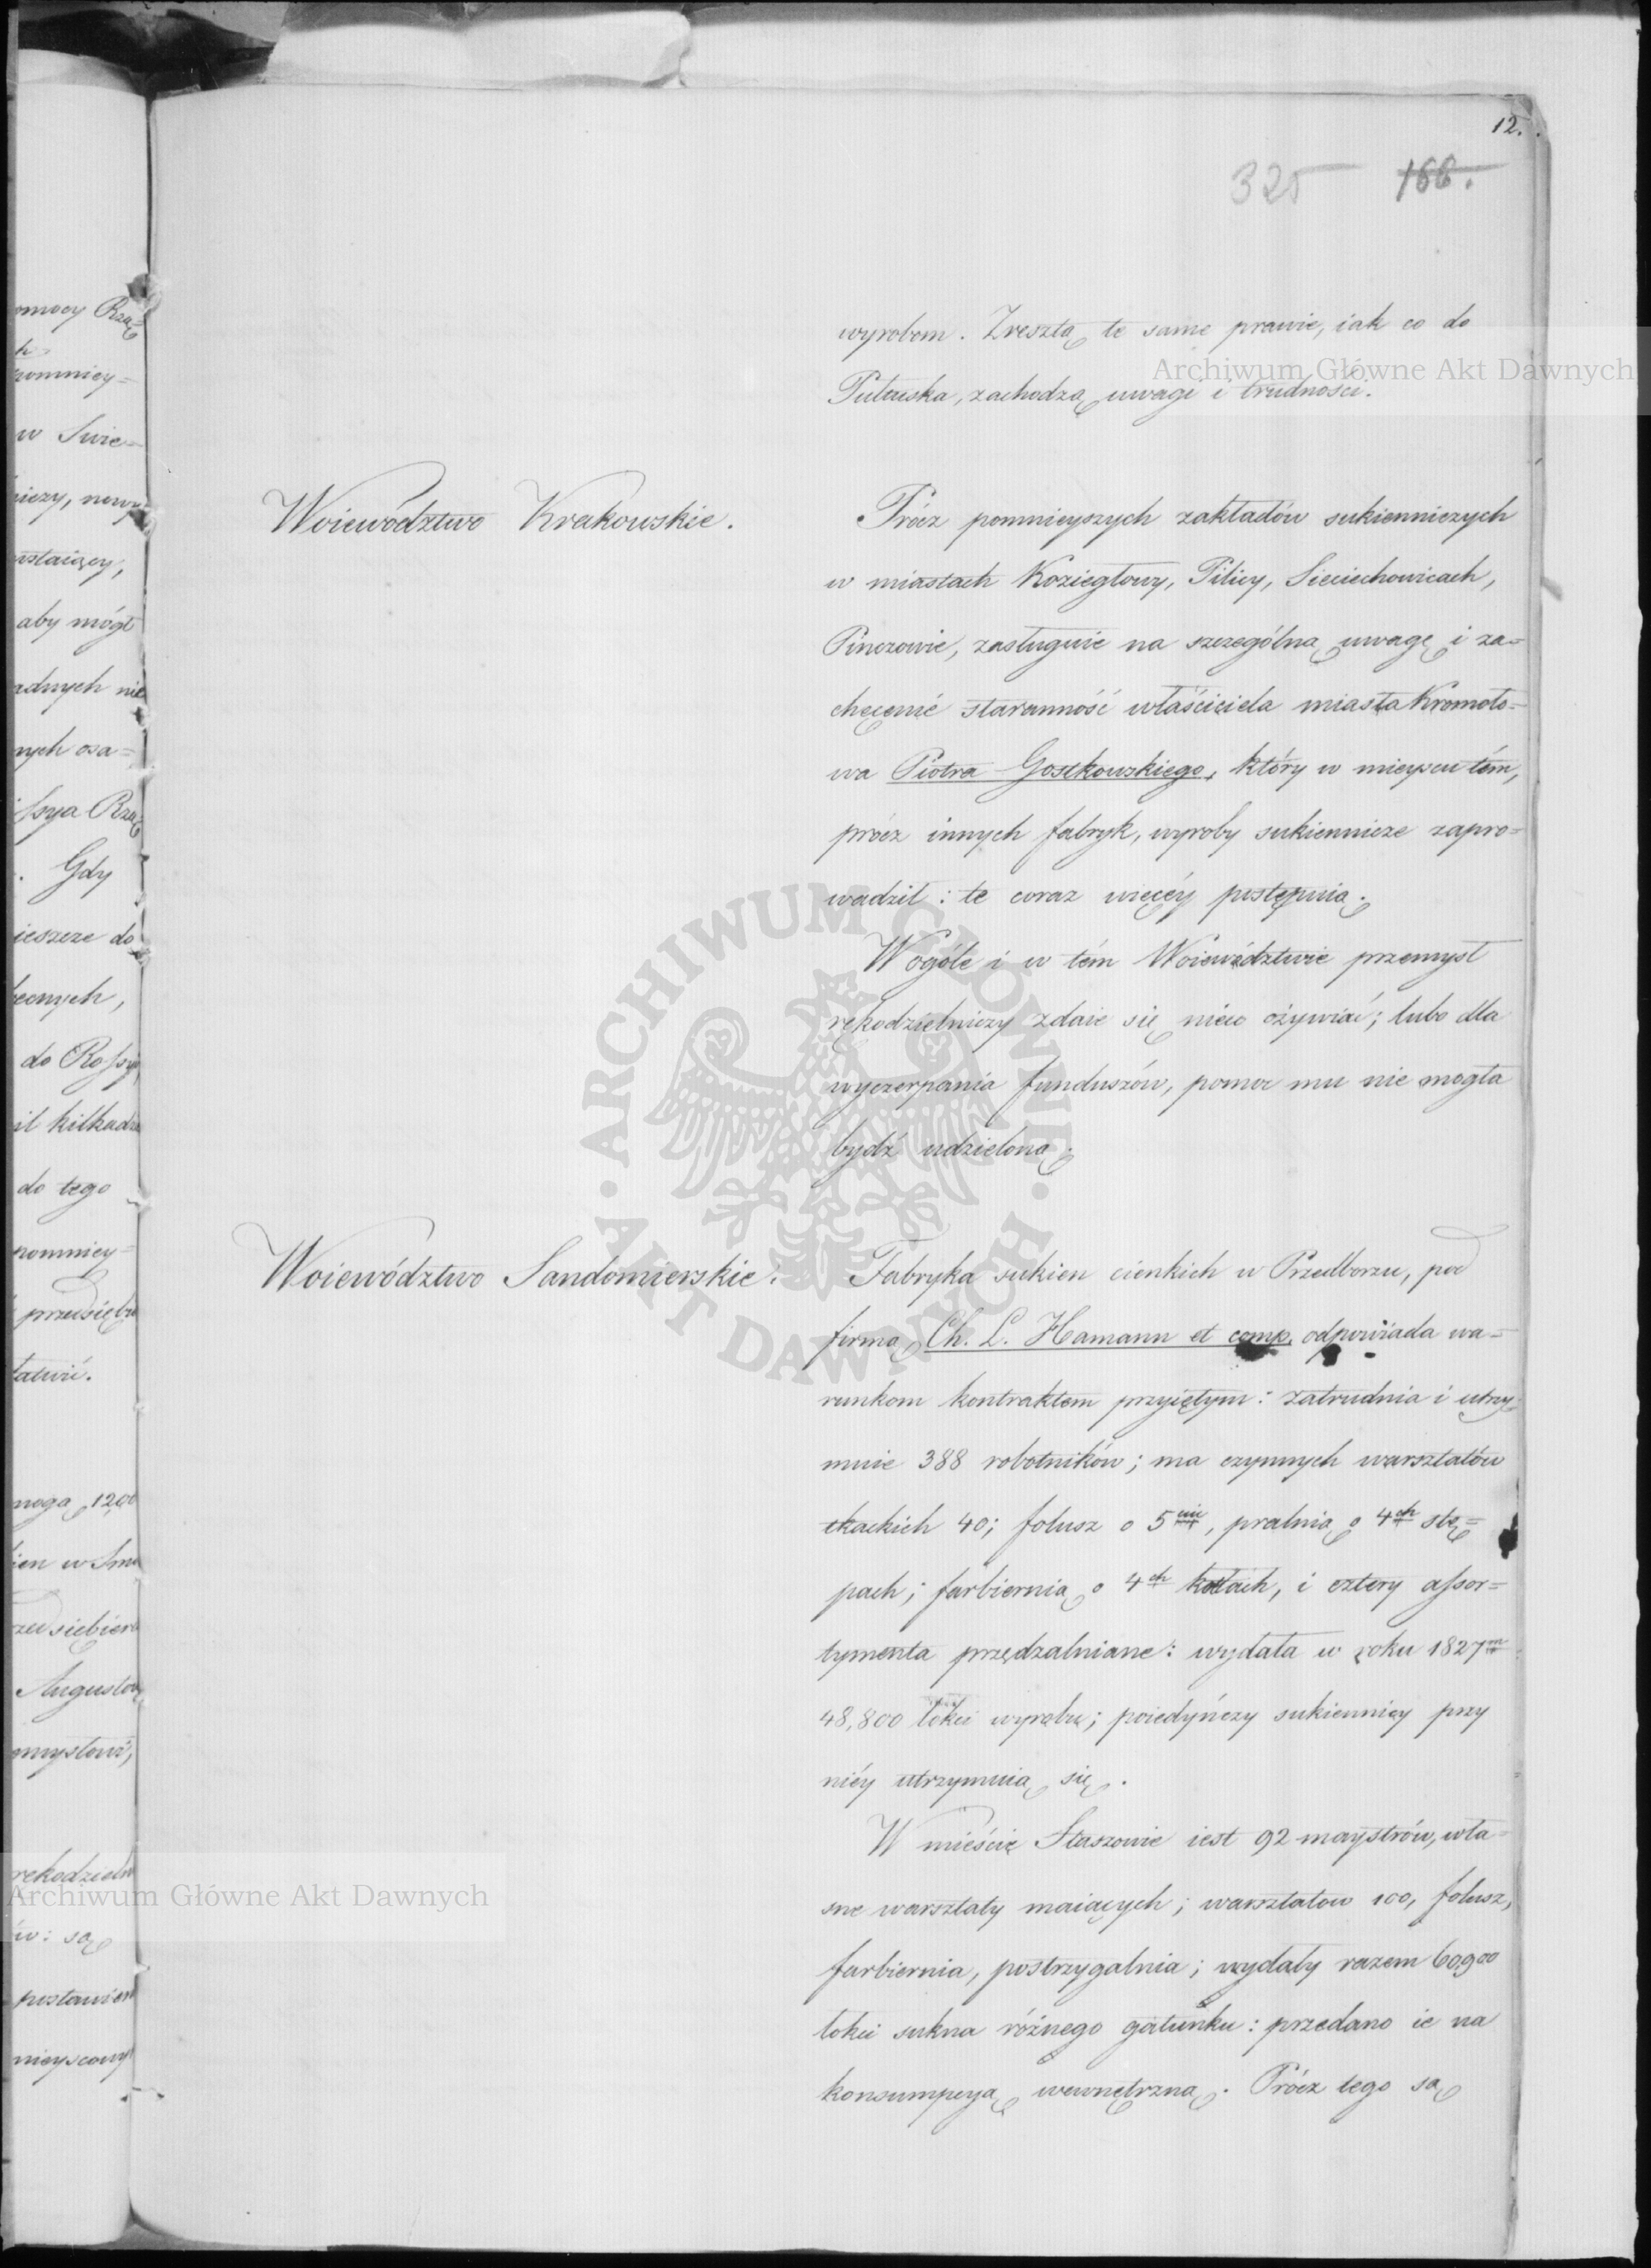 12.
325 168.
wyrobom. Zresztą te same prawie, iak co do
Pułtuska, zachodzą uwagi i trudności.
Woiewództwo Krakowskie.
Prócz pomnieyszych zakładów sukienniczych
w miastach Koziegłowy, Pilicy, Sieciechowicach,
Pinczowie, zasługuie na szczególną uwagę i za=
chęcenie staranność właściciela miasta Kromoło=
wa Piotra Gostkowskiego, który w mieyscu tém,
prócz innych fabryk, wyroby sukiennicze zapro=
wadził: te coraz więcéy postępuią.
W ogóle i w tém Woiewództwie przemysł
rękodzielniczy zdaie się nieco ożywiać; lubo dla
wyczerpania funduszów, pomoc mu nie mogła
bydź udzieloną.
Woiewództwo Sandomierskie.
Fabryka sukien cienkich w Przedborzu, pod
firmą Ch. L. Hamann et comp. odpowiada wa=
runkom kontraktem przyiętym: zatrudnia i utrzy=
muie 388 robotników; ma czynnych warsztatów
tkackich 40; folusz o 5ciu, pralnią o 4ch stę=
pach; farbiernią o 4ch kotłach, i cztery assor=
tymenta przędzalniane: wydała w roku 1827m
48,800 łokci wyrobu; poiedyńczy sukiennicy przy
niéy utrzymuią się.
W mieście Staszowie iest 92 maystrów, wła=
sne warsztaty maiących; warsztatow 100, folusz,
farbiernia, postrzygalnia; wydały razem 60,900
łokci sukna różnego gatunku: przedano ie na
konsumpcyą wewnętrzną. Prócz tego są
Archiwum Główne Akt Dawnych
Archiwum Główne Akt Dawnych
ARCHIWUM GŁÓWNE · AKT DAWNYCH ·
omocy Rzą=
pomniey=
w Swie=
niczy, nowy
wstaiący,
aby mógł
adnych nie
nych osa=
ssya Rzą
. Gdy
ieszcze do
becnych,
do Rossyi
ił kilkadzi
do tego
pomniey=
przedsiębi
łatwić.
noga 12,00
ien w
zedsiębier
Augustow
omysłowi,
rękodzieln
ów: są
postawien
mieyscowy